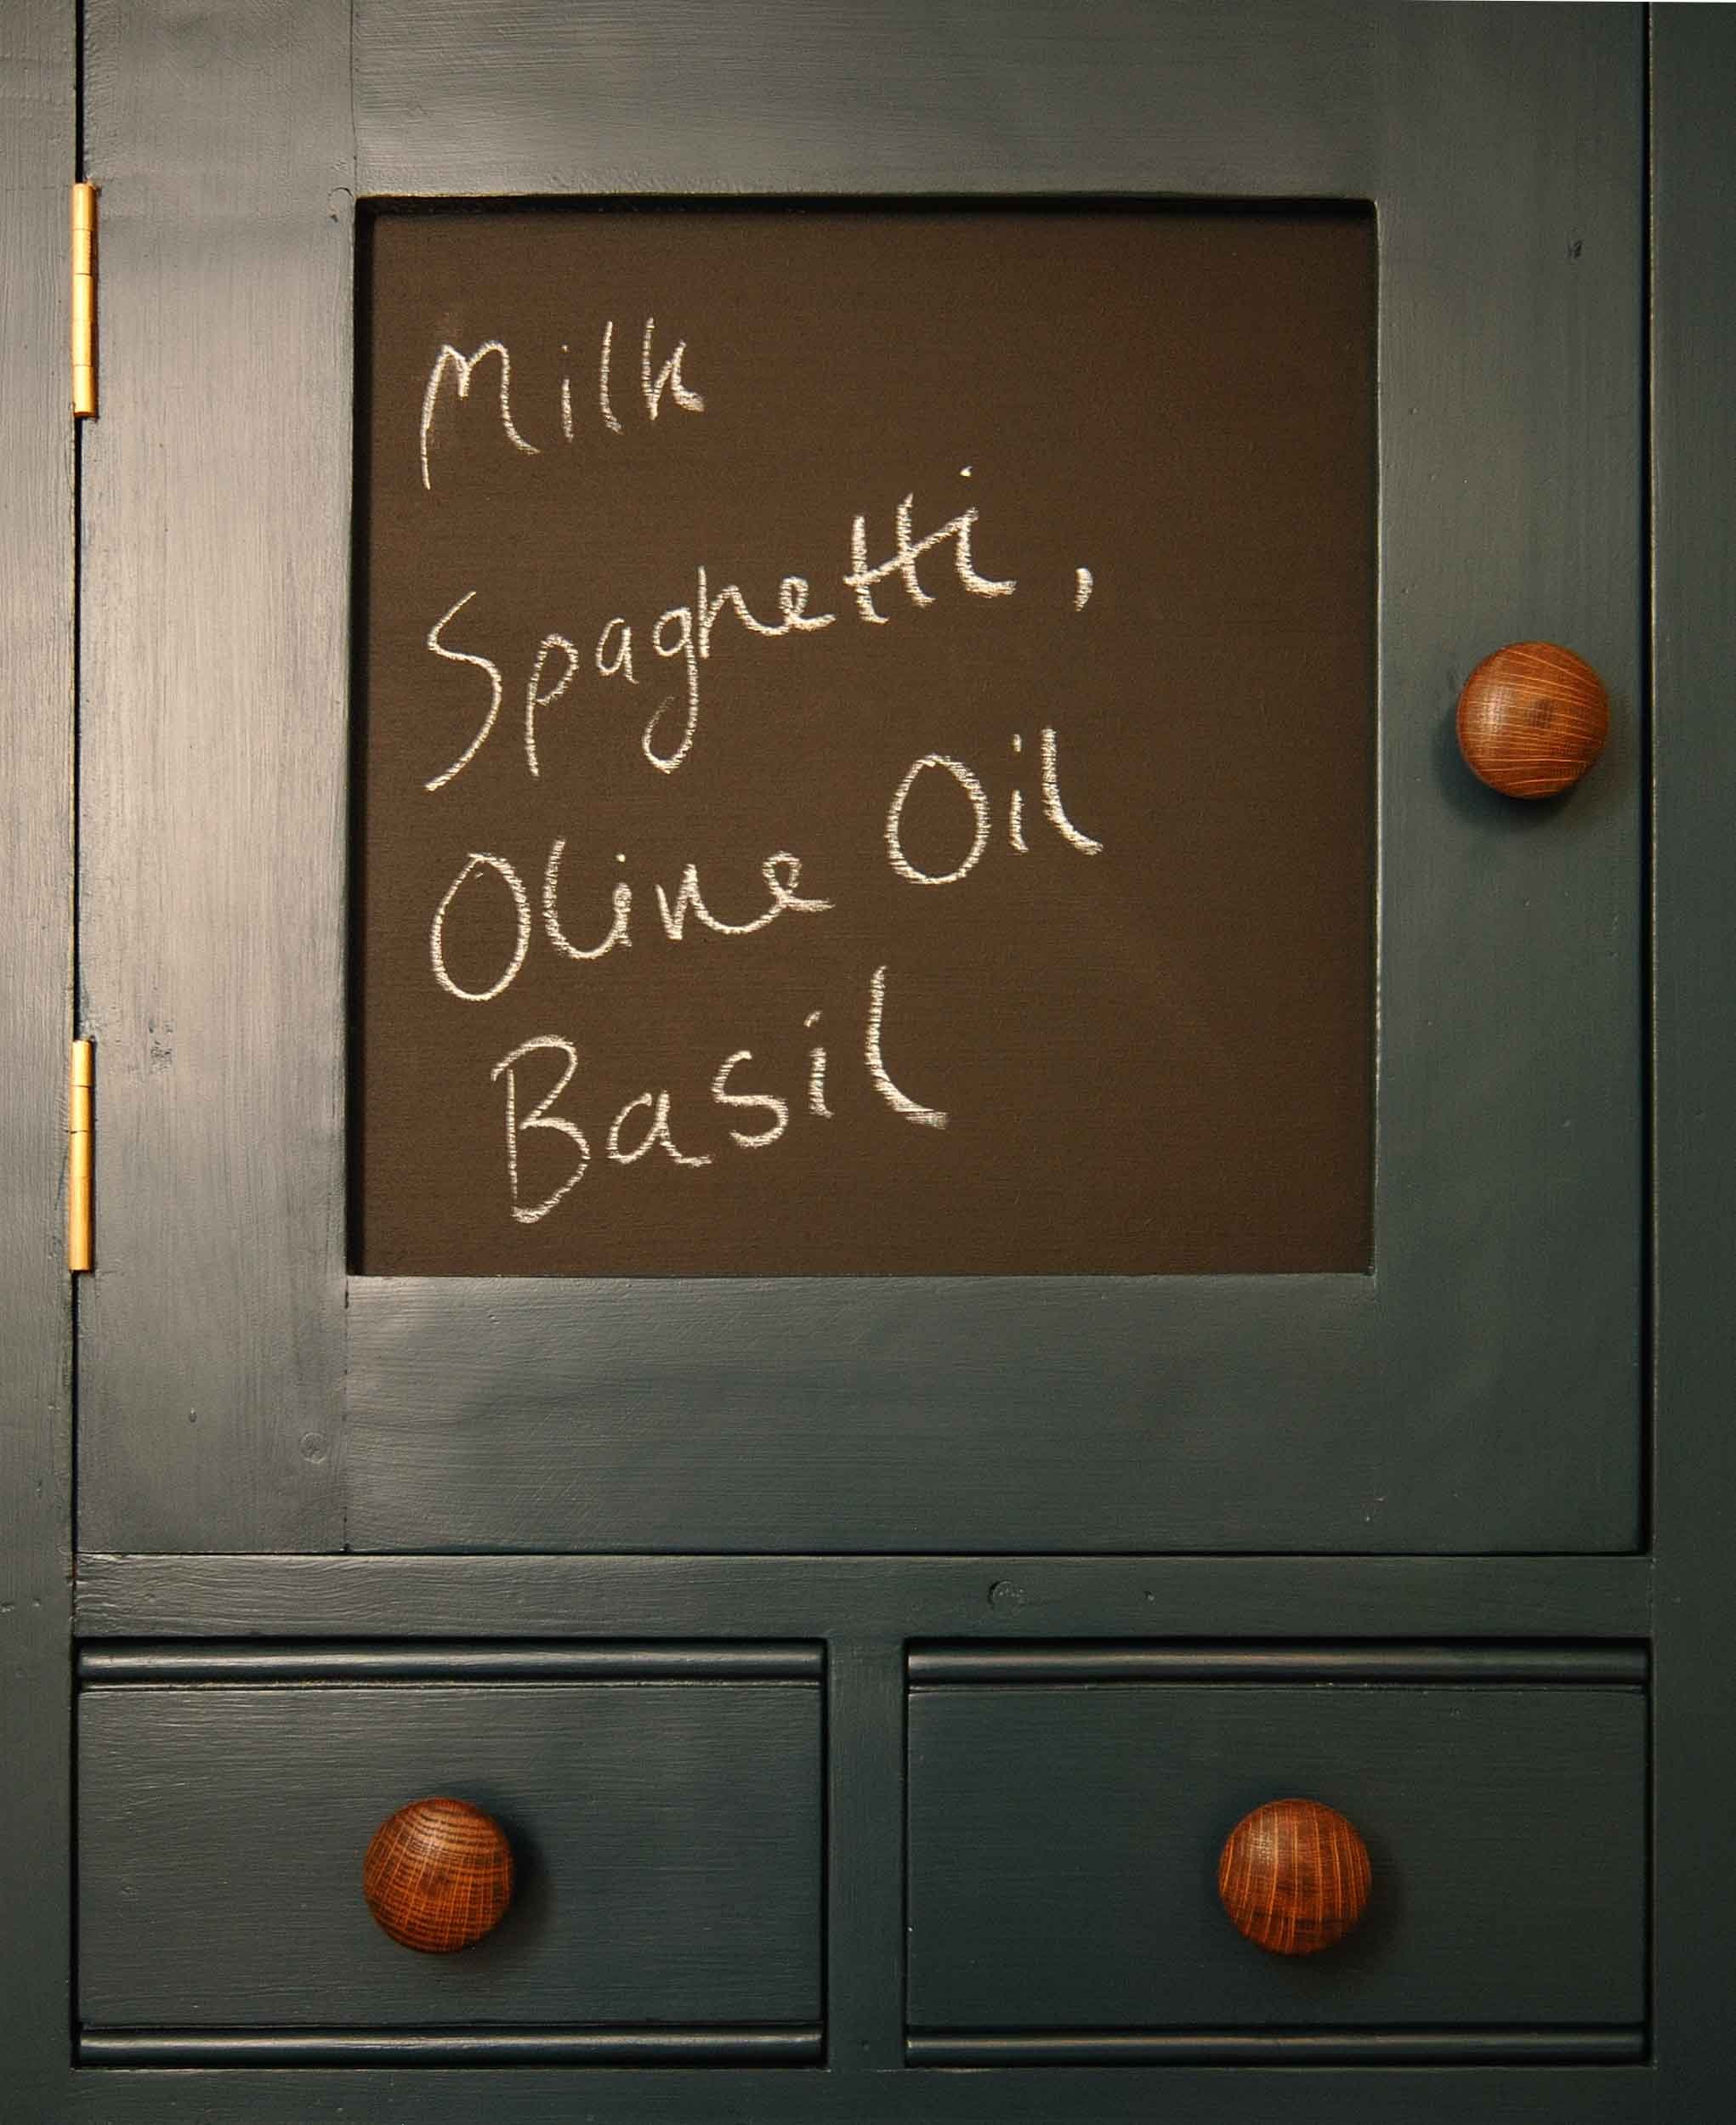 Milk
Spaghetti,
Olive Oil
Basil